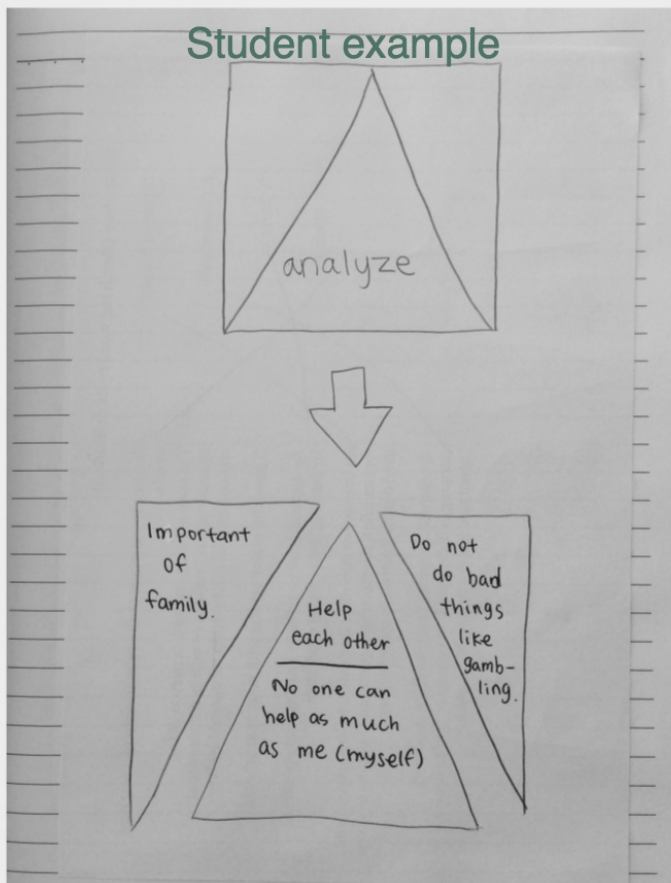 Student example
analyze
Important
of
family.
Help
each other
No one can
help as much
as me (myself)
Do not
do bad
things
like
gamb-
ling.